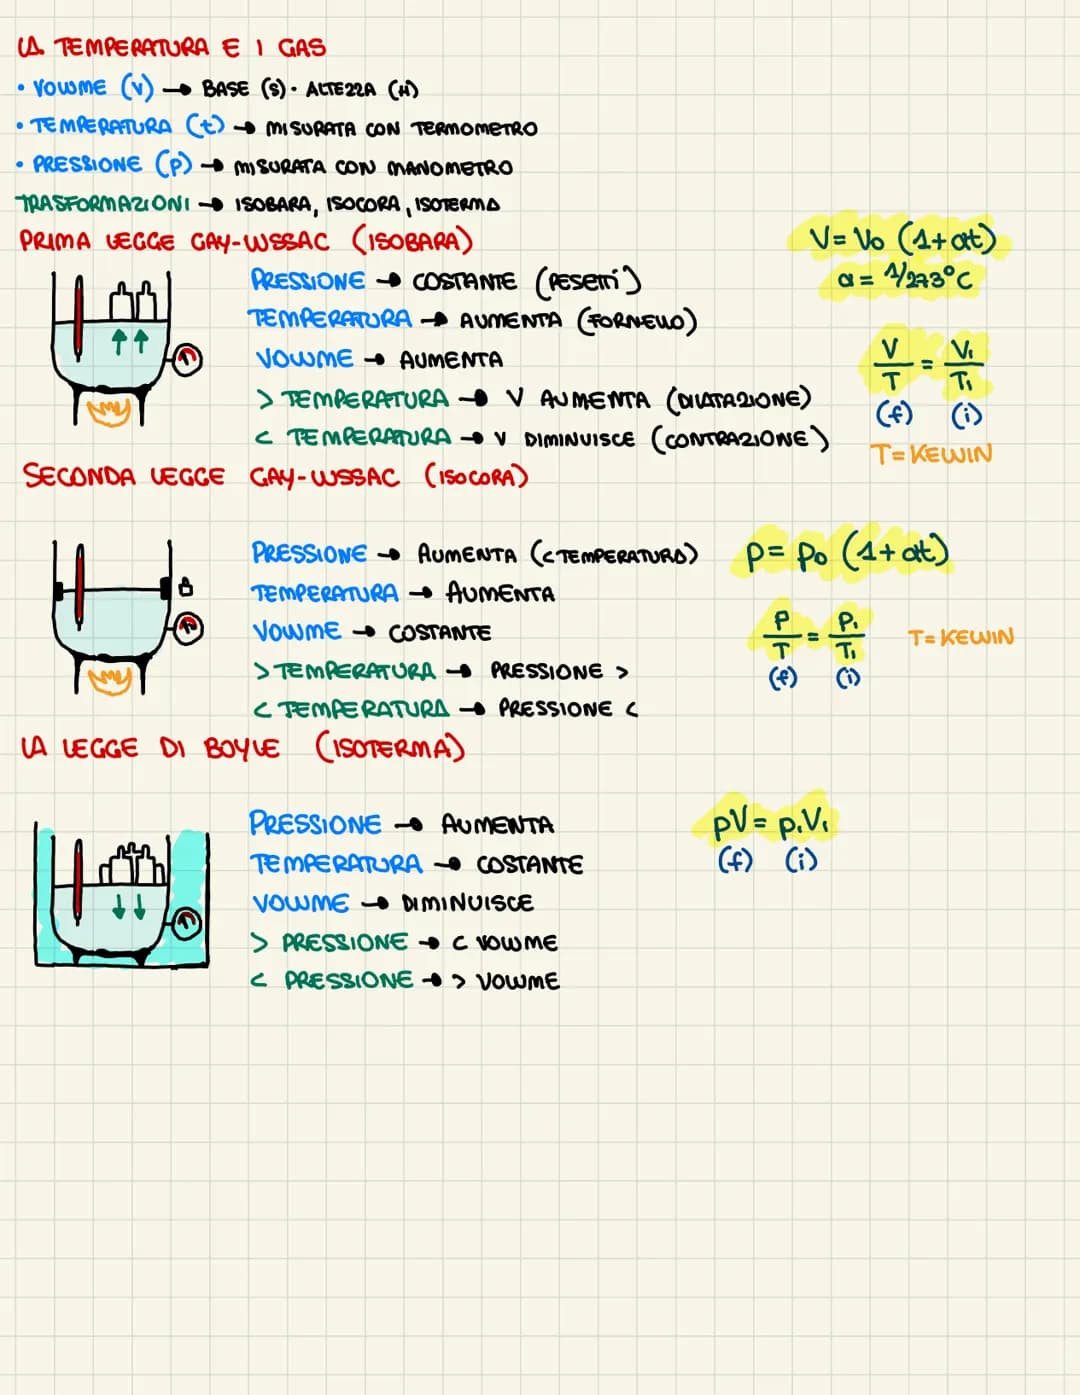 LA TEMPERATURA E I GAS
• VOLUME (V) → BASE (S) · ALTEZZA (H)
• TEMPERATURA (t) → MISURATA CON TERMOMETRO
• PRESSIONE (P) → MISURATA CON MANOMETRO
TRASFORMAZIONI → ISOBARA, ISOCORA, ISOTERMA
PRIMA LEGGE GAY-LUSSAC (ISOBARA)
V = V₀ (1+αt)
α = 1/273°C
PRESSIONE → COSTANTE (PESETTI)
TEMPERATURA → AUMENTA (FORNELLO)
VOLUME → AUMENTA
> TEMPERATURA → V AUMENTA (DILATAZIONE)
< TEMPERATURA → V DIMINUISCE (CONTRAZIONE)
V/T = V₁/T₁
(f) (i)
T = KELVIN
SECONDA LEGGE GAY-LUSSAC (ISOCORA)
PRESSIONE → AUMENTA (< TEMPERATURA)
TEMPERATURA → AUMENTA
VOLUME → COSTANTE
> TEMPERATURA → PRESSIONE >
< TEMPERATURA → PRESSIONE <
P = P₀ (1+αt)
P/T = P₁/T₁
(f) (i)
T = KELVIN
LA LEGGE DI BOYLE (ISOTERMA)
PRESSIONE → AUMENTA
TEMPERATURA → COSTANTE
VOLUME → DIMINUISCE
> PRESSIONE → < VOLUME
< PRESSIONE → > VOLUME
pV = p₁V₁
(f) (i)